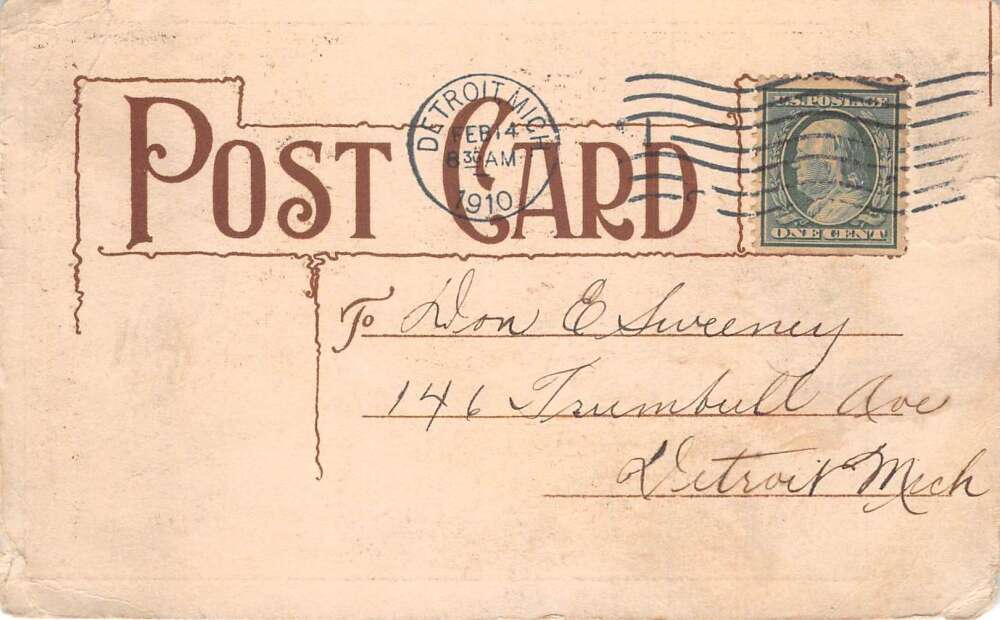 POST CARD
DETROIT MICH
FEB 14
8 30 AM
1910
U.S. POSTAGE
ONE CENT
To Don E Sweeney
146 Trumbull Ave
Detroit Mich